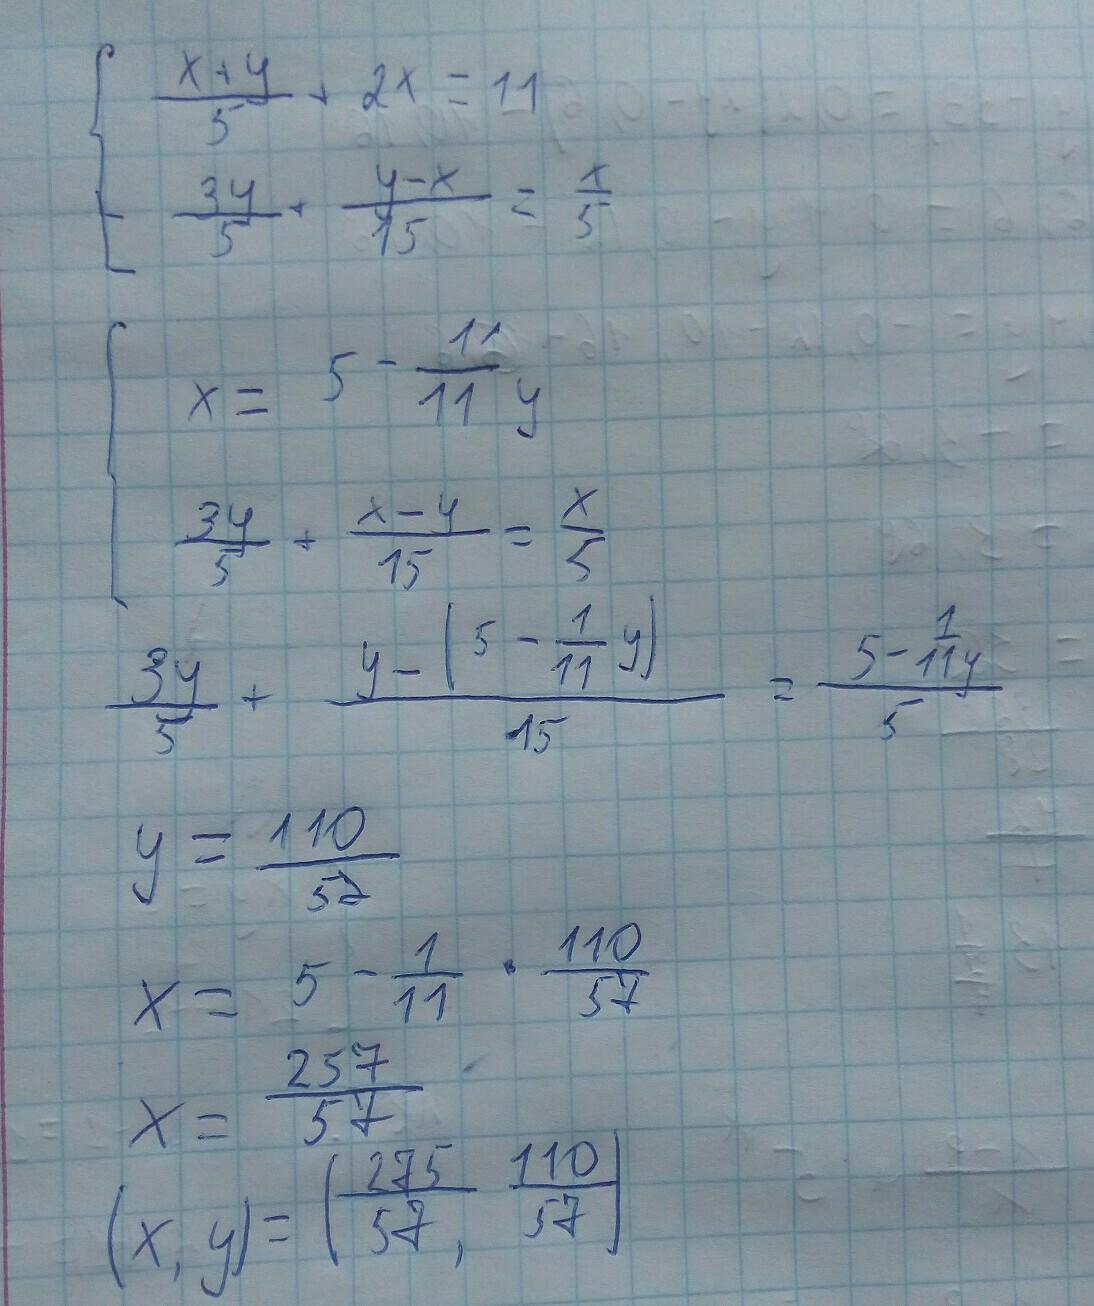 x+y/5 + 2x = 11
3y/5 + y-x/15 = x/5
x = 5 - 11/11 y
3y/5 + x-y/15 = x/5
3y/5 + y-(5-1/11 y)/15 = 5-1/11y/5
y = 110/57
x = 5 - 1/11 · 110/57
x = 257/57
(x, y) = (275/57, 110/57)